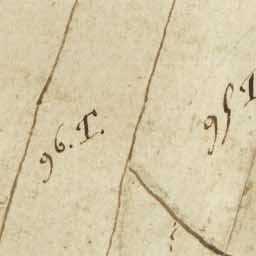 96. T.
95 T